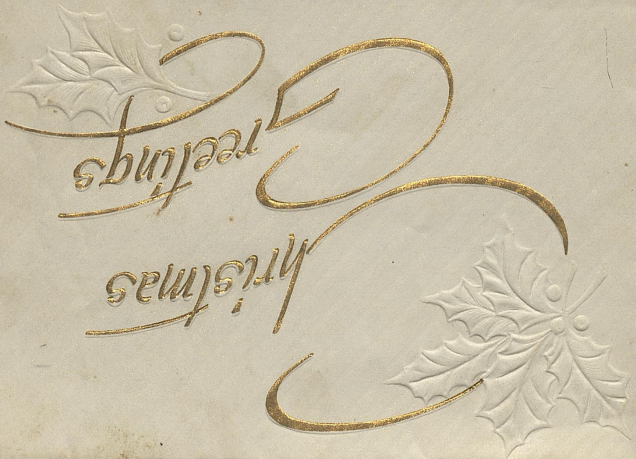 Christmas
Greetings